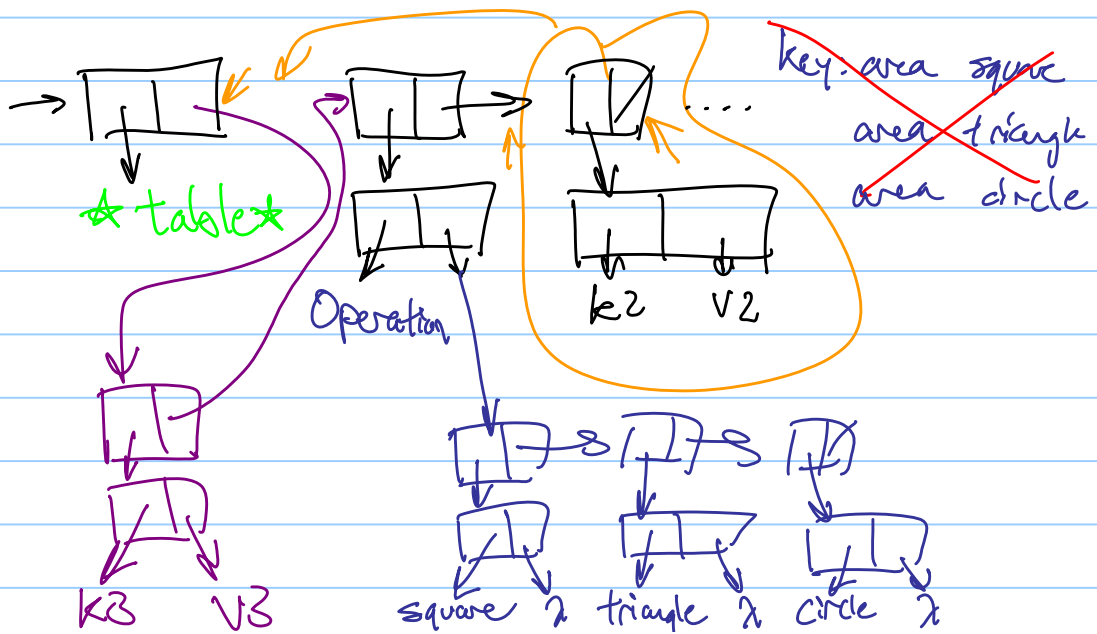 key. area square
area triangle
area circle
☆ table ☆
....
Operation
k2 V2
k3 V3
square λ triangle λ circle λ